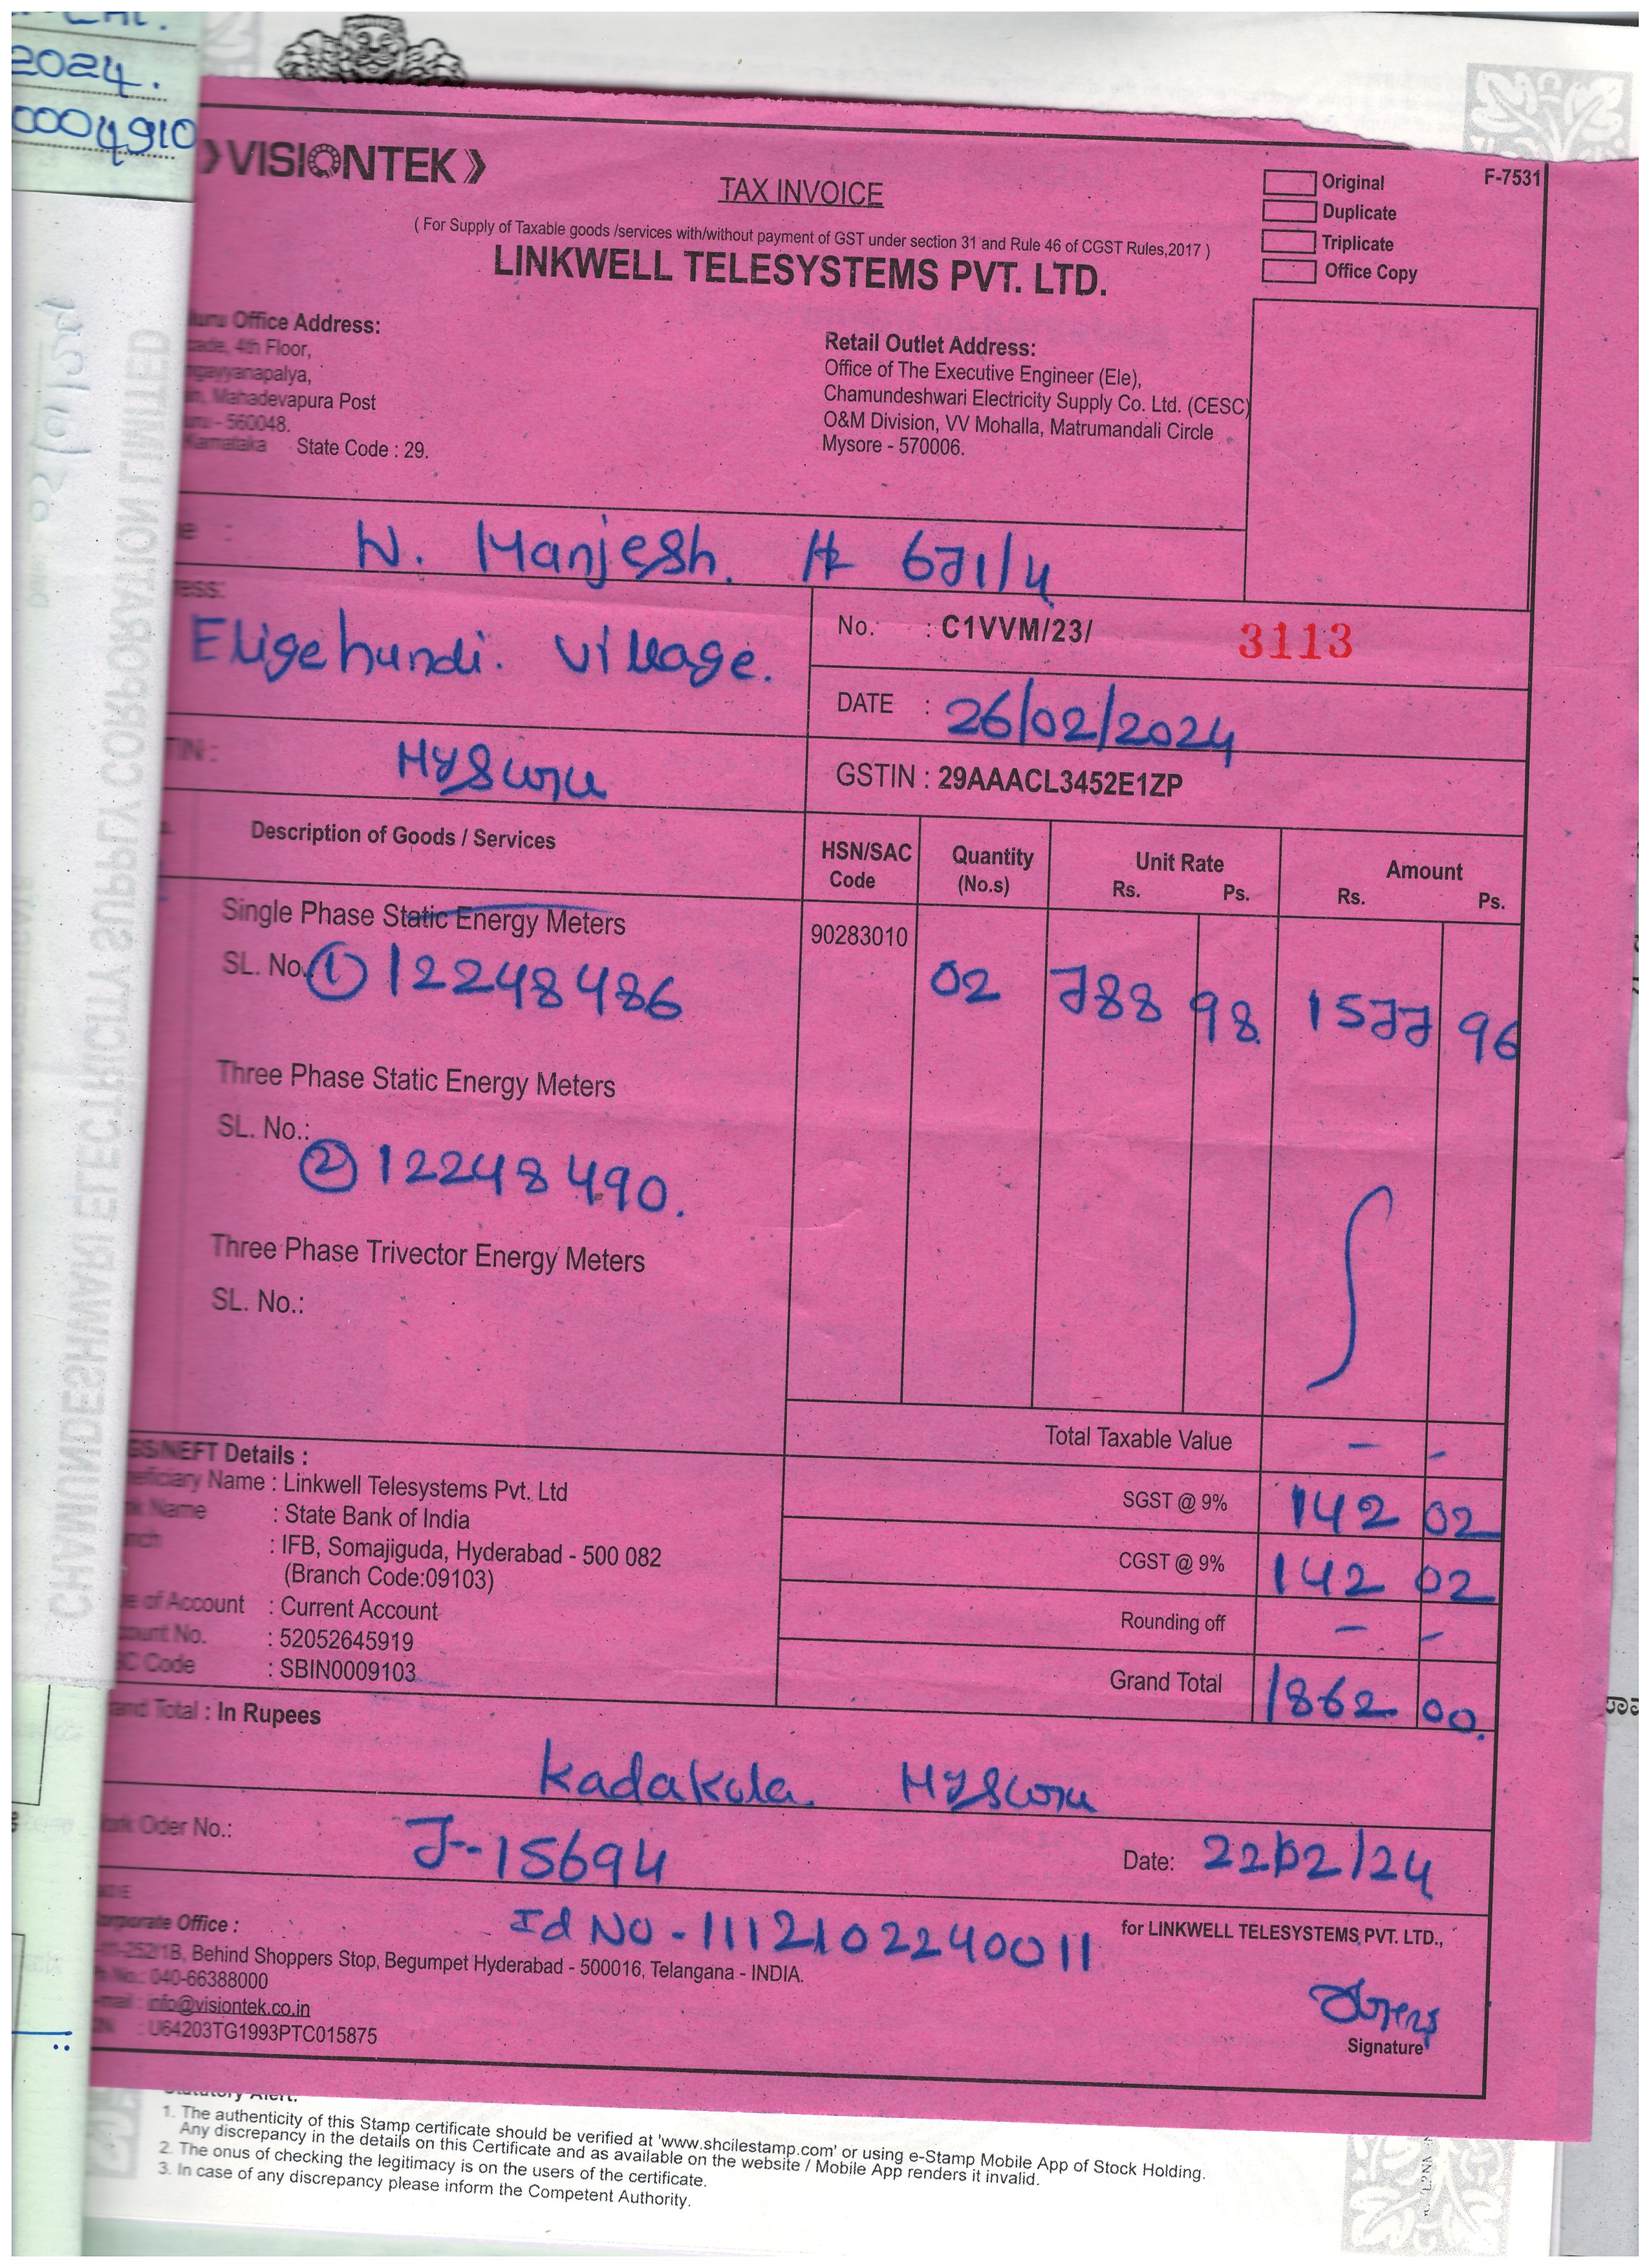 2024.
0004910
VISIONTEK
TAX INVOICE
F-7531
Original
Duplicate
Triplicate
Office Copy
( For Supply of Taxable goods /services with/without payment of GST under section 31 and Rule 46 of CGST Rules,2017 )
LINKWELL TELESYSTEMS PVT. LTD.
Office Address:
4th Floor,
Mahadevapura Post
- 560048.
Karnataka State Code : 29.
Retail Outlet Address:
Office of The Executive Engineer (Ele),
Chamundeshwari Electricity Supply Co. Ltd. (CESC)
O&M Division, VV Mohalla, Matrumandali Circle
Mysore - 570006.
N. Manjesh. # 671/4
Eligehundi. Village.
Mysuru
No. : C1VVM/23/ 3113
DATE : 26/02/2024
GSTIN : 29AAACL3452E1ZP
Description of Goods / Services
HSN/SAC Code
Quantity (No.s)
Unit Rate Rs. Ps.
Amount Rs. Ps.
Single Phase Static Energy Meters
90283010 02 788 98. 1577 96
SL. No. ① 12248486
Three Phase Static Energy Meters
SL. No.:
② 12248490.
Three Phase Trivector Energy Meters
SL. No.:
Total Taxable Value - -
SGST @ 9% 142 02
CGST @ 9% 142 02
Rounding off - -
Grand Total 1862 00.
GS/NEFT Details :
eficiary Name : Linkwell Telesystems Pvt. Ltd
Name : State Bank of India
: IFB, Somajiguda, Hyderabad - 500 082
(Branch Code:09103)
of Account : Current Account
No. : 52052645919
Code : SBIN0009103
Total : In Rupees
Kadakola. Mysuru
Oder No.: J-15694
Date: 22/02/24
Id No - 111210224 0011
Corporate Office :
Behind Shoppers Stop, Begumpet Hyderabad - 500016, Telangana - INDIA.
No.: 040-66388000
info@visiontek.co.in
: U64203TG1993PTC015875
for LINKWELL TELESYSTEMS PVT. LTD.,
Signature
CHAMUNDESHWARI ELECTRICITY SUPPLY CORPORATION LIMITED
Statutory Alert:
1. The authenticity of this Stamp certificate should be verified at 'www.shcilestamp.com' or using e-Stamp Mobile App of Stock Holding.
Any discrepancy in the details on this Certificate and as available on the website / Mobile App renders it invalid.
2. The onus of checking the legitimacy is on the users of the certificate.
3. In case of any discrepancy please inform the Competent Authority.